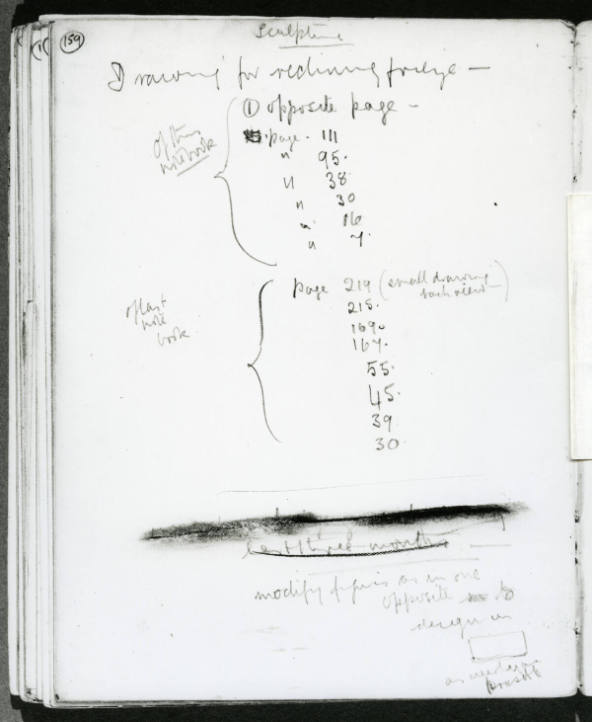 159
Sculpture
Drawing for reclining frieze —
① opposite page —
page. 111
" 95.
" 38
" 30
" 16
" 7.
of this
notebook
page 219 (small drawing
215.
169.
167.
55.
45.
39
30.
of last
note
book
months
modify figures as in one
opposite to
design in
as